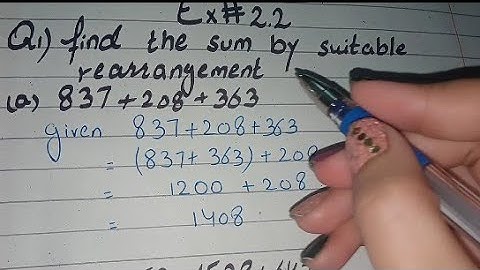 Ex#2.2
Q1) find the sum by suitable
rearrangement
(a) 837+208+363
given 837+208+363
= (837+363)+208
= 1200 +208
= 1408